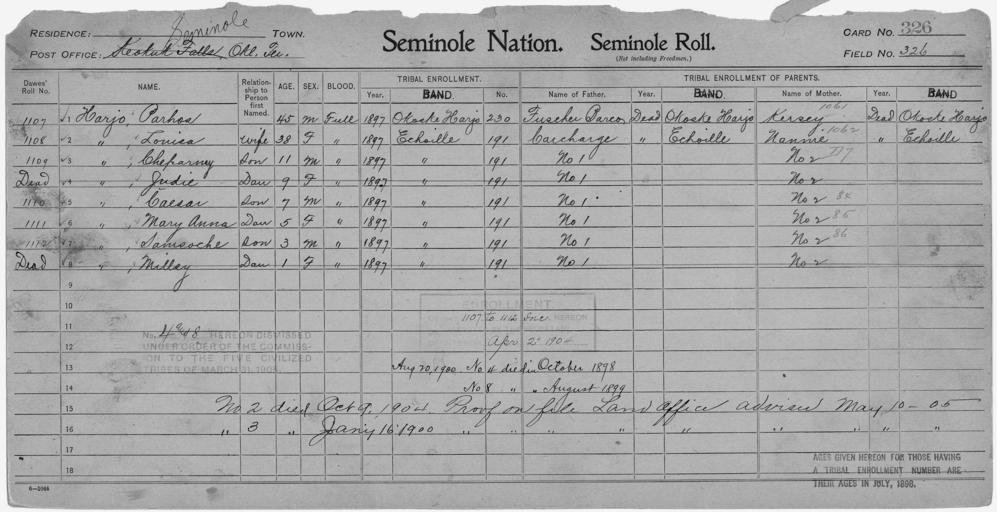 RESIDENCE: Seminole TOWN.
POST OFFICE: Keokuk Falls, Okl. Ter.
Seminole Nation. Seminole Roll.
(Not including Freedmen.)
CARD NO. 326
FIELD NO. 326
Dawes' Roll No. NAME. Relationship to Person first Named. AGE. SEX. BLOOD. TRIBAL ENROLLMENT. TRIBAL ENROLLMENT OF PARENTS.
Year. BAND. No. Name of Father. Year. BAND. Name of Mother. Year. BAND
1107 1 Harjo, Parhos 45 M Full 1897 Okoske Harjo 230 Fuscher Parco Dead Okoske Harjo Kersey 1061 Dead Okoske Harjo
1108 2 " , Louisa wife 38 F " 1897 Echoille 191 Carcharge " Echoille Nannie 1062 " Echoille
1109 3 " , Cheparney Son 11 M " 1897 " 191 No 1 No 2
Dead 4 " , Judie Dau 9 F " 1897 " 191 No 1 No 2
1110 5 " , Caesar Son 7 M " 1897 " 191 No 1 No 2 84
1111 6 " , Mary Anna Dau 5 F " 1897 " 191 No 1 No 2 85
1112 7 " , Samsoche Son 3 M " 1897 " 191 No 1 No 2 86
Dead 8 " , Millsy Dau 1 F " 1897 " 191 No 1 No 2
9
10
ENROLLMENT
11 1107 to 1112 Inc HEREON
No. 4 & 8 HEREON DISMISSED
UNDER ORDER OF THE COMMISSION
TO THE FIVE CIVILIZED
TRIBES OF MARCH 31, 1905.
12 Apr 2" 1904
13 Aug 20, 1900 No 4 died in October 1898
14 No 8 " " August 1899
15 No 2 died Oct 9, 1904. Proof on file Land office advises May 10 - 05
16 " 3 " Jany 16 1900 " " " " " " " "
17
18
AGES GIVEN HEREON FOR THOSE HAVING
A TRIBAL ENROLLMENT NUMBER ARE
THEIR AGES IN JULY, 1898.